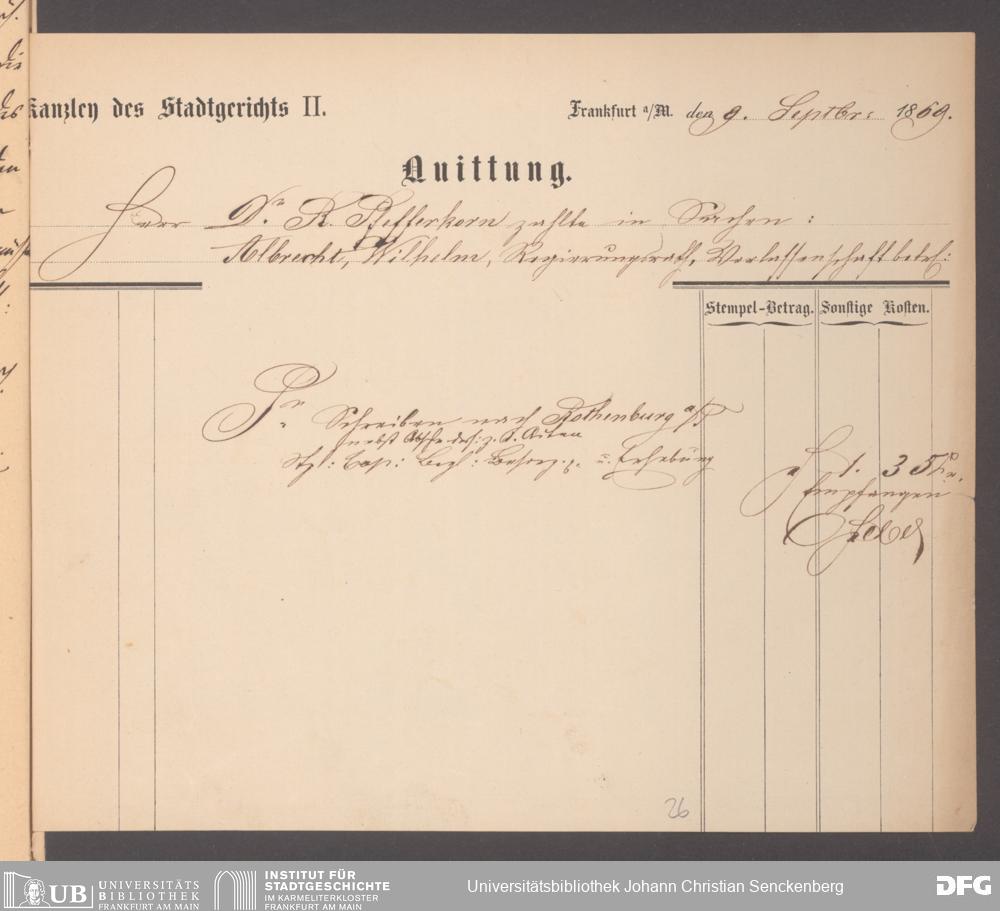 Kanzley des Stadtgerichts II.
Frankfurt a/M. den 9. Septbr: 1869.
Quittung.
Herr Dr. R. Pfefferkorn zahlte in Sachen :
Albrecht, Wilhelm, Regierungsrath, Verlassenschaft betrf:
Stempel-Betrag. Sonstige Kosten.
Schreiben nach Rothenburg a/T
nebst
u. Erhebung
f 1. 35 kr.
Empfangen
26
UB UNIVERSITÄTS
BIBLIOTHEK
FRANKFURT AM MAIN
INSTITUT FÜR
STADTGESCHICHTE
IM KARMELITERKLOSTER
FRANKFURT AM MAIN
Universitätsbibliothek Johann Christian Senckenberg
DFG